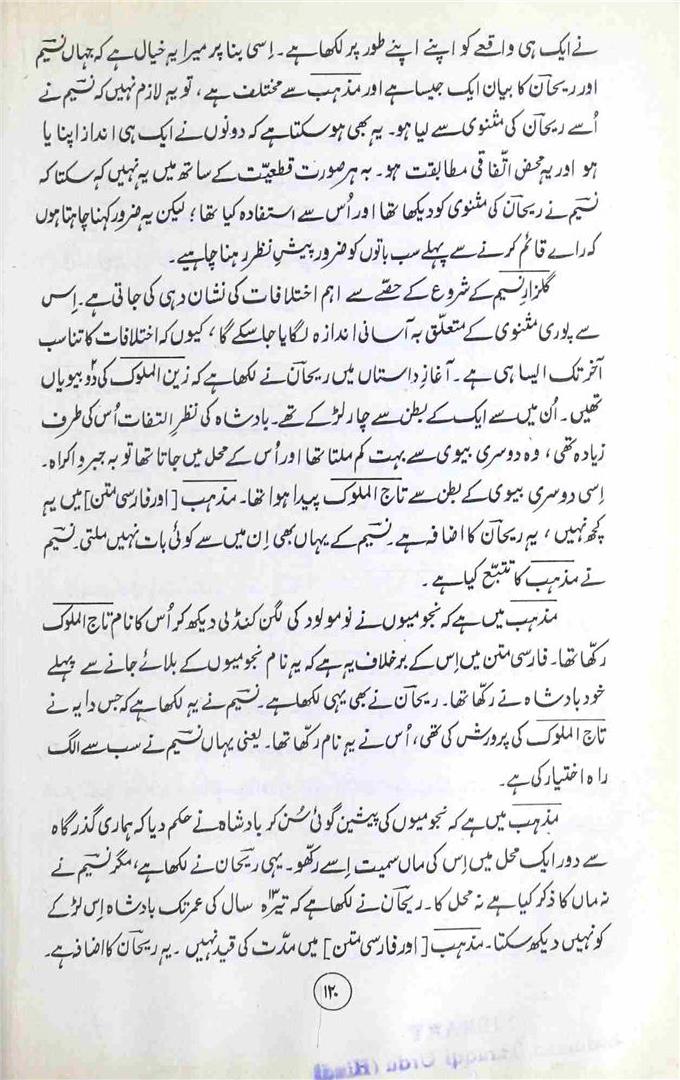 نے ایک ہی واقعے کو اپنے اپنے طور پر لکھا ہے۔ اِسی بنا پر میرا یہ خیال ہے کہ جہاں نسیمؔ
اور ریحانؔ کا بیان ایک جیسا ہے اور مذہب سے مختلف ہے، تو یہ لازم نہیں کہ نسیمؔ نے
اُسے ریحانؔ کی مثنوی سے لیا ہو۔ یہ بھی ہو سکتا ہے کہ دونوں نے ایک ہی انداز اپنا یا
ہو اور یہ محض اتّفاقی مطابقت ہو۔ بہ ہر صورت قطعیّت کے ساتھ میں یہ نہیں کہہ سکتا کہ
نسیمؔ نے ریحانؔ کی مثنوی کو دیکھا تھا اور اُس سے استفادہ کیا تھا؛ لیکن یہ ضرور کہنا چاہتا ہوں
کہ راے قائم کرنے سے پہلے سب باتوں کو ضرور پیشِ نظر رہنا چاہیے۔
گلزارِ نسیم کے شروع کے حصّے سے اہم اختلافات کی نشان دہی کی جاتی ہے۔ اِس
سے پوری مثنوی کے متعلّق بہ آسانی اندازہ لگایا جا سکے گا، کیوں کہ اختلافات کا تناسب
آخر تک ایسا ہی ہے۔ آغازِ داستاں میں ریحانؔ نے لکھا ہے کہ زین الملوک کی دو۲ بیویاں
تھیں۔ اُن میں سے ایک کے بطن سے چار لڑکے تھے۔ بادشاہ کی نظرِ التفات اُس کی طرف
زیادہ تھی، وہ دوسری بیوی سے بہت کم ملتا تھا اور اُس کے محل میں جاتا تھا تو بہ جبر و اکراہ۔
اِسی دوسری بیوی کے بطن سے تاج الملوک پیدا ہوا تھا۔ مذہب [اور فارسی متن] میں یہ
کچھ نہیں، یہ ریحانؔ کا اضافہ ہے۔ نسیمؔ کے یہاں بھی اِن میں سے کوئی بات نہیں ملتی۔ نسیمؔ
نے مذہب کا تتبّع کیا ہے۔
مذہب میں ہے کہ نجومیوں نے نومولود کی لگن کنڈلی دیکھ کر اُس کا نام تاج الملوک
رکھا تھا۔ فارسی متن میں اِس کے برخلاف یہ ہے کہ یہ نام نجومیوں کے بلائے جانے سے پہلے
خود بادشاہ نے رکھا تھا۔ ریحانؔ نے بھی یہی لکھا ہے۔ نسیمؔ نے یہ لکھا ہے کہ جس دایہ نے
تاج الملوک کی پرورش کی تھی، اُس نے یہ نام رکھا تھا۔ یعنی یہاں نسیمؔ نے سب سے الگ
راہ اختیار کی ہے۔
مذہب میں ہے کہ نجومیوں کی پیشین گوئی سُن کر بادشاہ نے حکم دیا کہ ہماری گذرگاہ
سے دور ایک محل میں اِس کی ماں سمیت اِسے رکھو۔ یہی ریحانؔ نے لکھا ہے، مگر نسیمؔ نے
نہ ماں کا ذکر کیا ہے نہ محل کا۔ ریحانؔ نے لکھا ہے کہ تیرہ۱۳ سال کی عمر تک بادشاہ اِس لڑکے
کو نہیں دیکھ سکتا۔ مذہب [اور فارسی متن] میں مدّت کی قید نہیں۔ یہ ریحانؔ کا اضافہ ہے۔
۱۲۰